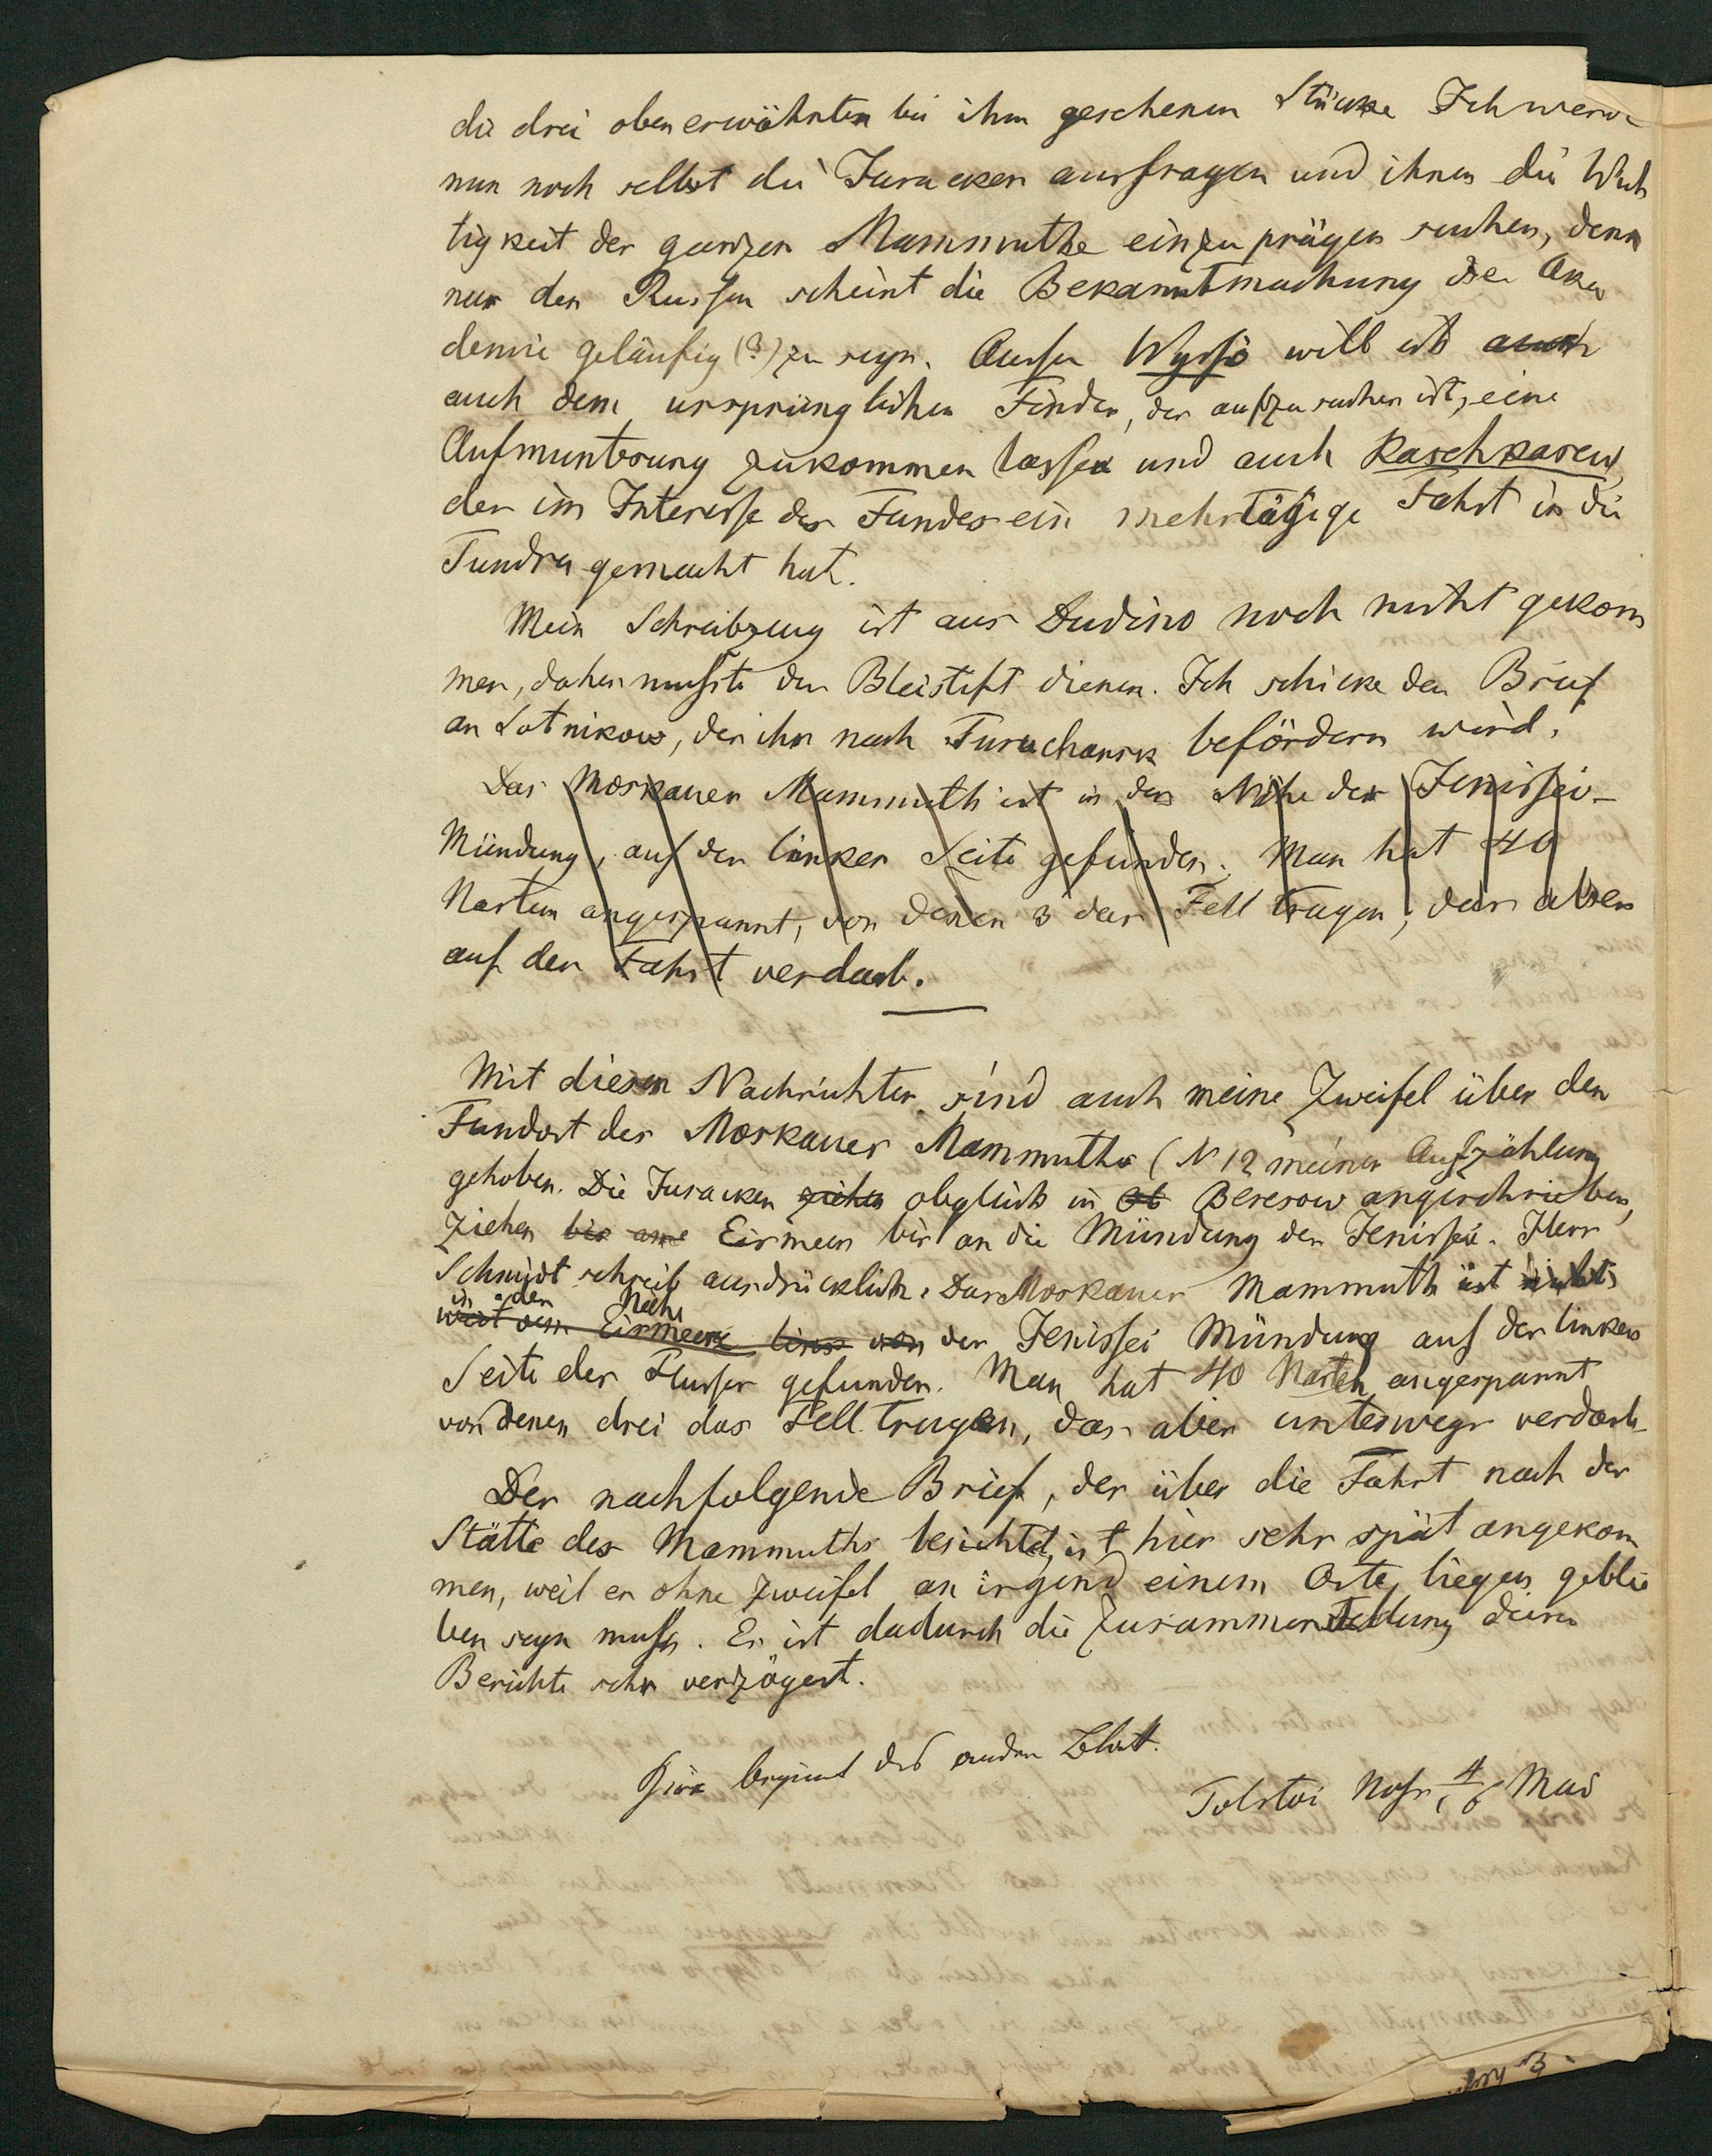 die drei oben erwähnten bei ihm gesehenen Stücke Ich werde
nun noch selbst die Juracken ausfragen und ihnen die Wich
tigkeit der ganzen Mammuthe einzuprägen suchen, denn
nur den Russen scheint die Bekanntmachung der Aka
demie geläufig (?) zu seyn. Ausser Wysso will ich auch
auch dem ursprünglichen Finder, der aufzusuchen ist, eine
Aufmunterung zukommen lassen und auch Kaschkarew
der im Interesse des Fundes ein mehrtägige Fahrt in die
Tundra gemacht hat.
Mein Schreibzeug ist aus Dudino noch nicht gekom
men, daher musste der Bleistift dienen. Ich schicke den Brief
an Sotnikow, der ihn nach Turuchansk befördern wird.
Das Moskauer Mammuth ist in der Nähe der Jenissei-
Mündung, auf der linken Seite gefunden. Man hat 40
Narten angespannt, von denen 3 das Fell trugen; das aber
auf der Fahrt verdarb.
Mit diesen Nachrichten sind auch meine Zweifel über den
Fundort des Moskauer Mammuths (N 12 meiner Aufzählung
gehoben. Die Juracken ziehen obgleich in Ob Beresow angeschrieben,
ziehen bis ans Eismeer bis an die Mündung des Jenissei. Herr
Schmidt schreib ausdrücklich: Das Moskauer Mammuth ist nichts
in der Nähe
weit vom Eismeere links von der Jenissei Mündung auf der linken
Seite des Flusses gefunden. Man hat 40 Narten angespannt
von denen drei das Fell trugen, das aber unterwegs verdarb
Der nachfolgende Brief, der über die Fahrt nach der
Stätte des Mammuths berichtet, ist hier sehr spät angekom
men, weil er ohne Zweifel an irgend einem Orte liegen geblie
ben seyn muss. Es ist dadurch die Zusammenstellung dieser
Berichte sehr verzögert.
Hier beginnt das andre Blatt.
Tolstoi Noss 4/6 Mai